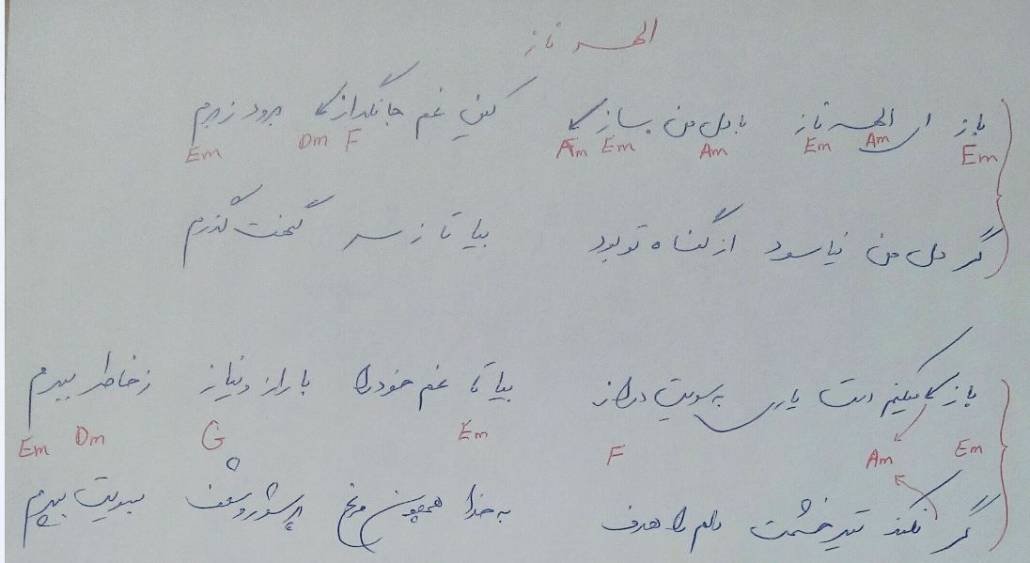 الهه ناز
باز ای الهه ناز با دل من بساز کین غم جانگداز برود ز برم
Em Am Em Am Em Am F Dm Em
گر دل من نیاسود از گناه تو بود بیا تا ز سر گنهت گذرم
باز میکنم دست یاری به سویت دراز بیا تا غم خود را با راز و نیاز ز خاطر ببرم
Em Am F Em G Dm Em
گر نکند تیر خشمت دلم را هدف به خدا همچون مرغ پرشور و شعف بسویت بپرم